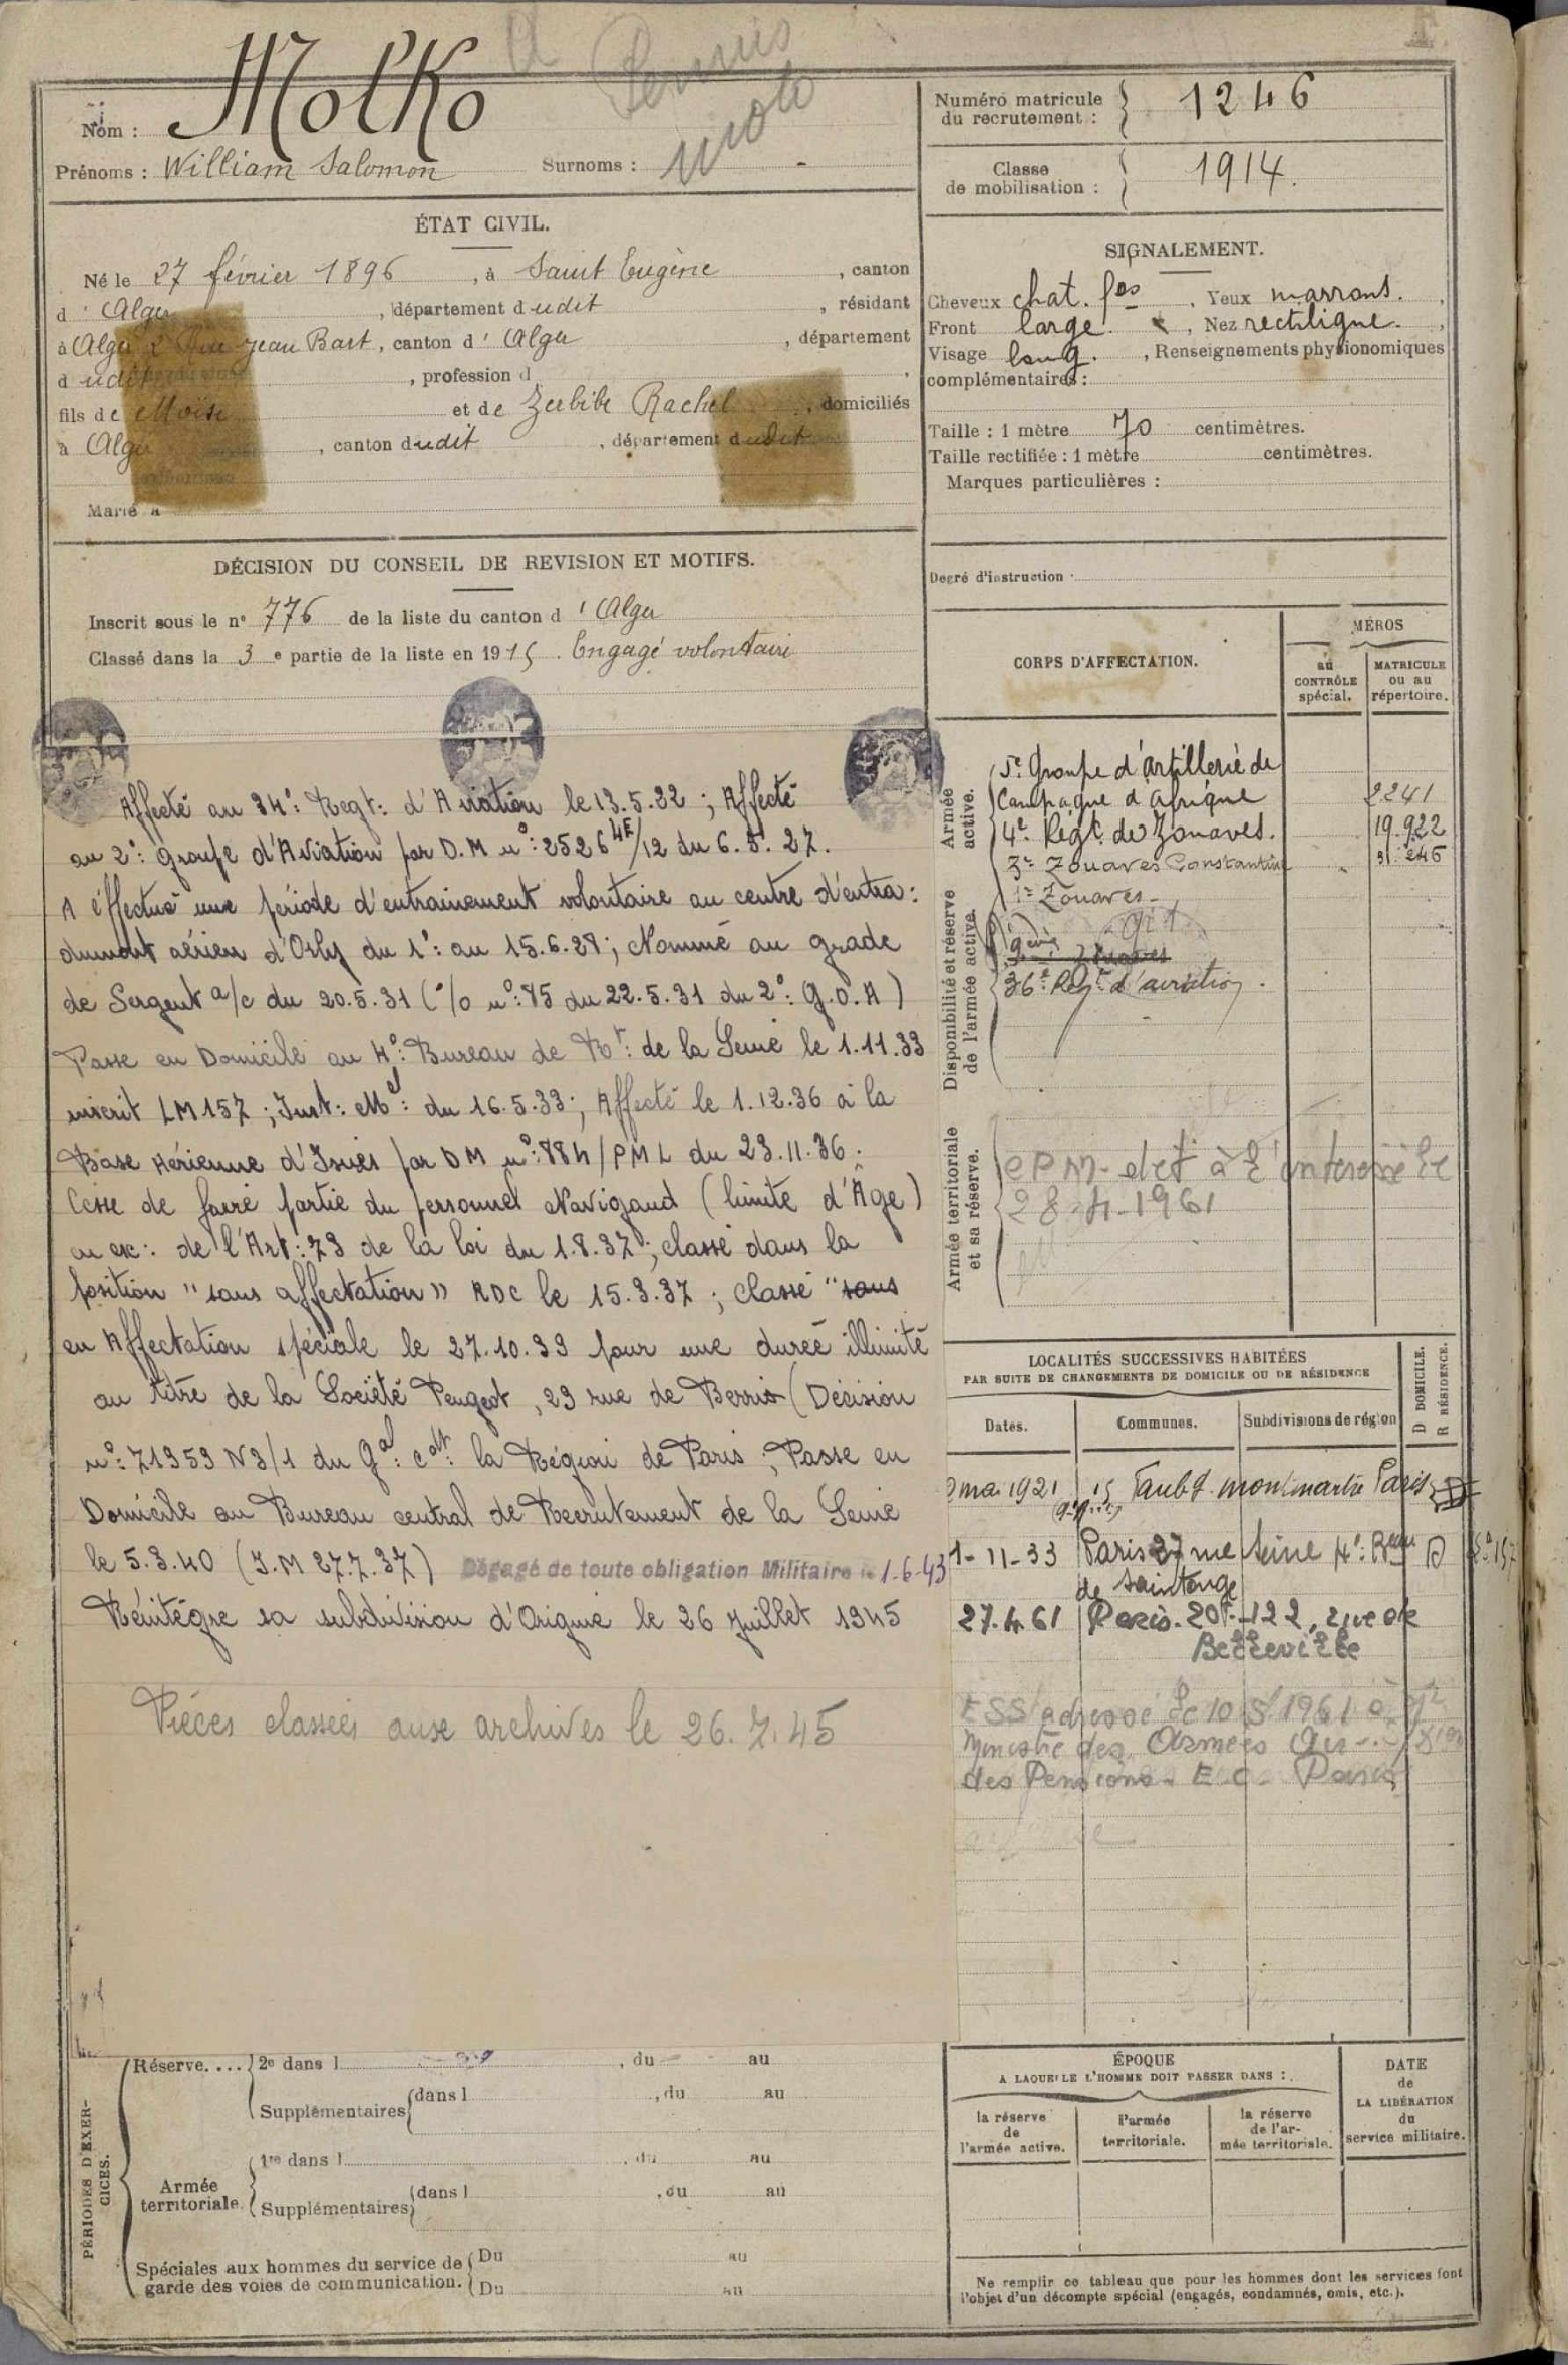 Permis
moto
Nom : Molko
Prénoms : William Salomon Surnoms : -
Numéro matricule
du recrutement : 1246
Classe
de mobilisation : 1914.
ÉTAT CIVIL.
Né le 27 février 1896, à Saint Eugène, canton
d' Alger, département dudit, résidant
à Alger 2 Rue Jean Bart, canton d' Alger, département
dudit, profession d
fils de Moïse et de Zerbibe Rachel, domiciliés
à Alger, canton dudit, département dudit
Marié à
SIGNALEMENT.
Cheveux chat. fos. Yeux marrons.
Front large., Nez rectiligne.
Visage long., Renseignements physionomiques
complémentaires :
Taille : 1 mètre 70 centimètres.
Taille rectifiée : 1 mètre centimètres.
Marques particulières :
Degré d'instruction :
DÉCISION DU CONSEIL DE REVISION ET MOTIFS.
Inscrit sous le n° 776 de la liste du canton d' Alger
Classé dans la 3e partie de la liste en 1915. Engagé volontaire
Affecté au 34e: Regt: d'Aviation le 13.5.22 ; Affecté
au 2e: Groupe d'Aviation par D.M n°: 2526 4E/12 du 6.5.27.
A éffectué une période d'entrainement volontaire au centre d'entra:
dument aérien d'Orly du 1e: au 15.6.28; Nommé au grade
de Sergent a/c du 20.5.31 (°/o n°: 85 du 22.5.31 du 2e: G.O.A)
Passe en Domicile au 4e: Bureau de Rt: de la Seine le 1.11.33
inscrit LM157 ; Inst: Mel: du 16.5.33; Affecté le 1.12.36 à la
Base Aérienne d'Issies par DM n°: 884/PML du 23.11.36.
Cesse de faire partie du personnel Navigand (limite d'Âge)
en exe: de l'Art: 73 de la loi du 1.8.37; classé dans la
position "sans affectation" RDC le 15.3.37 ; classé "sans
en Affectation spéciale le 27.10.39 pour une durée illimité
au titre de la Société Peugeot, 29 rue de Berris (Décision
n°: 71353 N3/1 du Gal: cdt: la Région de Paris ; Passe en
Domicile au Bureau central de Recrutement de la Seine
le 5.3.40 (I.M 27.7.37) Dégagé de toute obligation Militaire le 1-6-43
Réintégre sa subdivision d'Origine le 26 Juillet 1945
Pièces classées aux archives le 26.7.45
CORPS D'AFFECTATION.
MÉROS
au
CONTRÔLE
spécial.
MATRICULE
ou au
répertoire.
Armée
active.
5e Groupe d'artillerie de
Campagne d'Afrique 2241
4e Régt de Zouaves. 19.922
3e Zouaves Constantine 31.246
1e Zouaves
Disponibilité et réserve
de l'armée active.
9eme Zouaves
36e: Regt: d'aviation.
Armée territoriale
et sa réserve.
EPM- det à l'interessé le
28-4-1961
LOCALITÉS SUCCESSIVES HABITÉES
PAR SUITE DE CHANGEMENTS DE DOMICILE OU DE RÉSIDENCE
Dates. Communes. Subdivisions de région D DOMICILE. R RÉSIDENCE.
mai 1921 15 Faubg. montmartre Paris
1-11-33 Paris 37 rue Seine 4e: Beau D
de Saintonge
27.4.61 Paris.20e-122, rue de
Belleville
ESS adressé le 10.5.1961 à
Ministre des Armées
des Pensions - E.C. Paris
PÉRIODES D'EXERCICES.
Réserve.... 2e dans l , du au
Supplémentaires dans l , du au
Armée
territoriale. 1re dans l , du au
Supplémentaires dans l , du au
Spéciales aux hommes du service de Du au
garde des voies de communication. Du au
ÉPOQUE
A LAQUELLE L'HOMME DOIT PASSER DANS :
la réserve
de
l'armée active.
l'armée
territoriale.
la réserve
de l'ar-
mée territoriale.
DATE
de
LA LIBÉRATION
du
service militaire.
Ne remplir ce tableau que pour les hommes dont les services font
l'objet d'un décompte spécial (engagés, condamnés, omis, etc.).